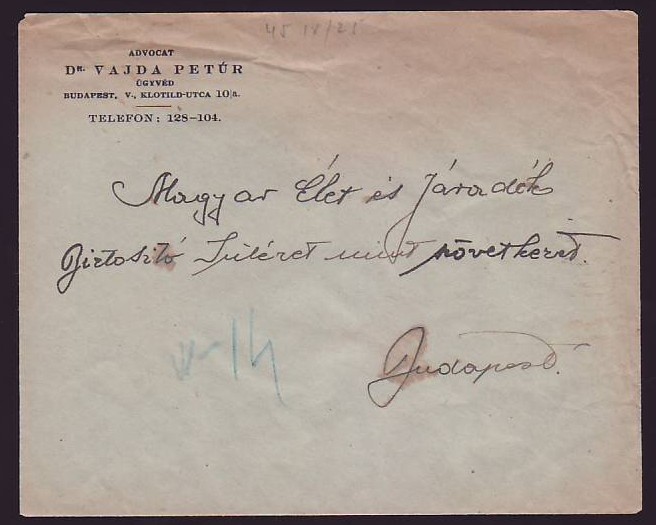 45 18/25
ADVOCAT
DR. VAJDA PETÚR
ÜGYVÉD
BUDAPEST, V., KLOTILD-UTCA 10/a.
TELEFON: 128-104.
Magyar Élet és Járadék
Biztositó Intézet mint szövetkezet.
Budapest.